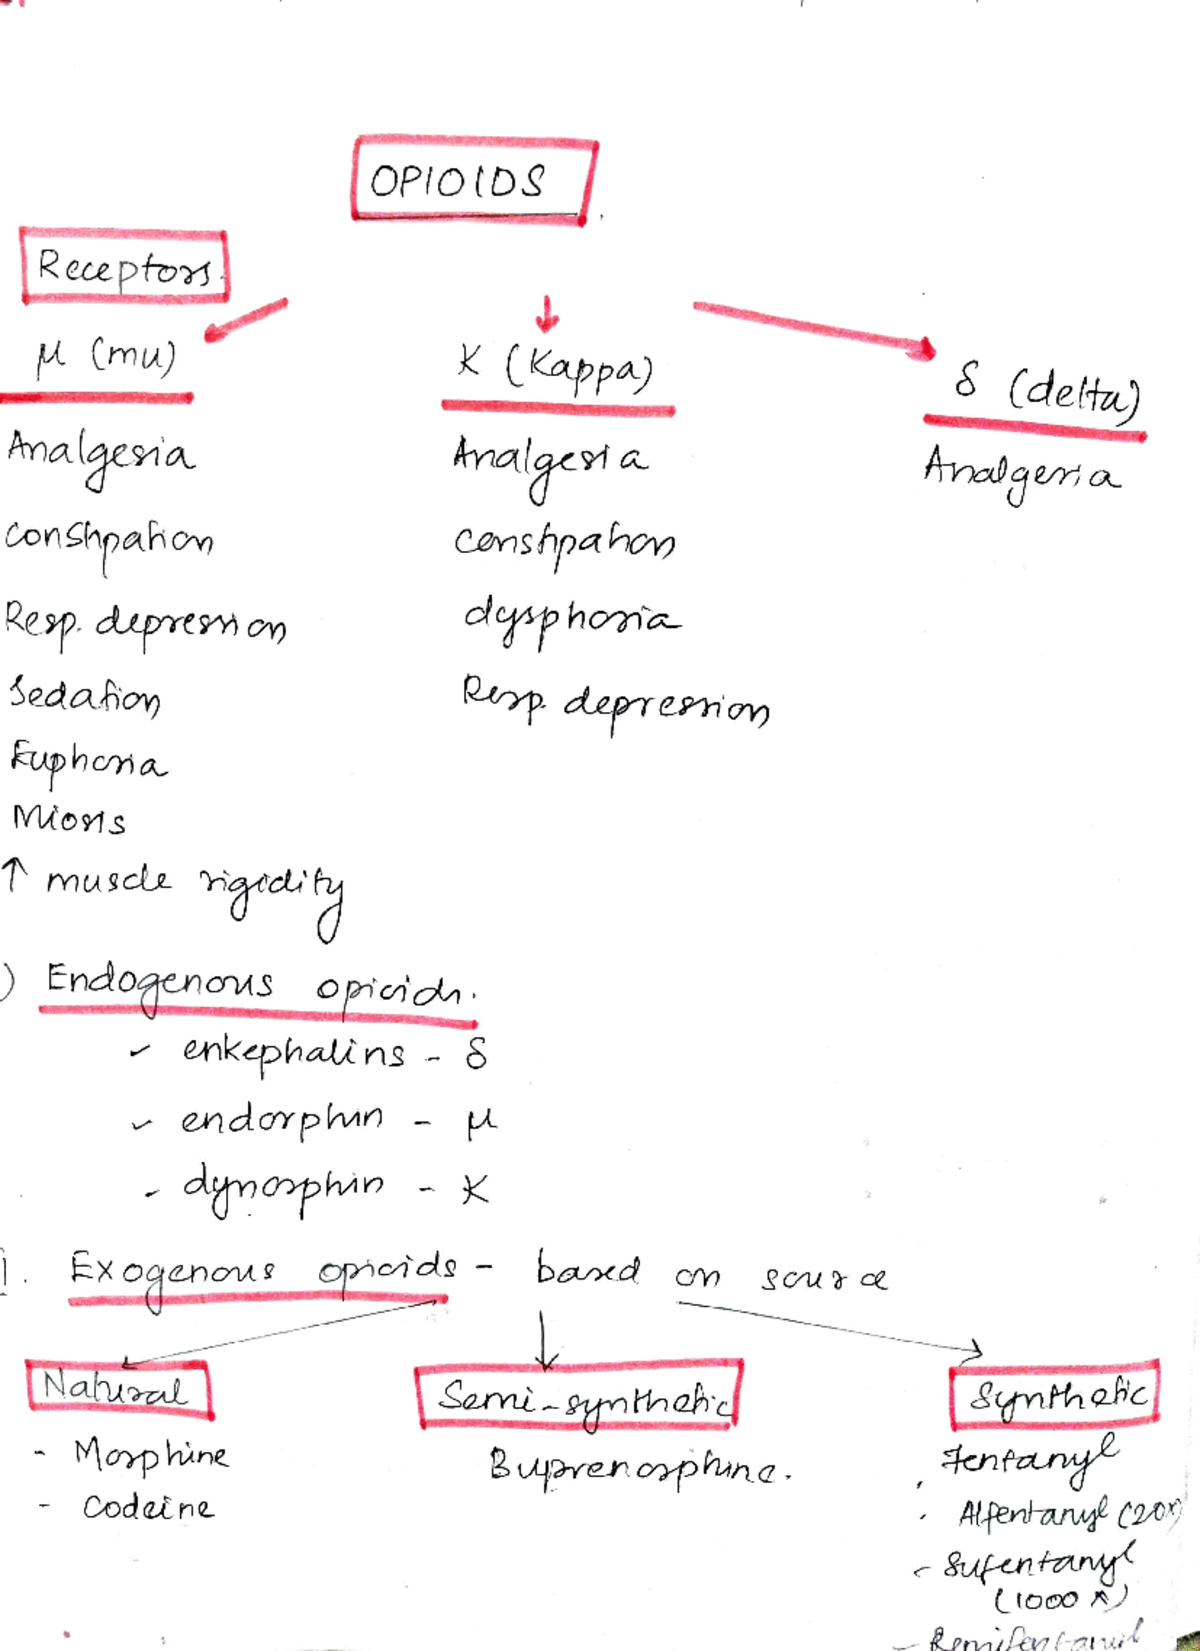 OPIOIDS
Receptors.
μ (mu)
K (Kappa)
δ (delta)
Analgesia
Constipation
Resp. depression
Sedation
Euphoria
Miosis
↑ muscle rigidity
Analgesia
constipation
dysphoria
Resp. depression
Analgesia
) Endogenous opioids.
✓ enkephalins - δ
✓ endorphin - μ
- dynorphin - K
]. Exogenous opioids - based on source
Natural
- Morphine
- Codeine
Semi-synthetic
Buprenorphine.
Synthetic
. Fentanyl
. Alfentanyl (20x)
- Sufentanyl
(1000 x)
- Remifentanyl